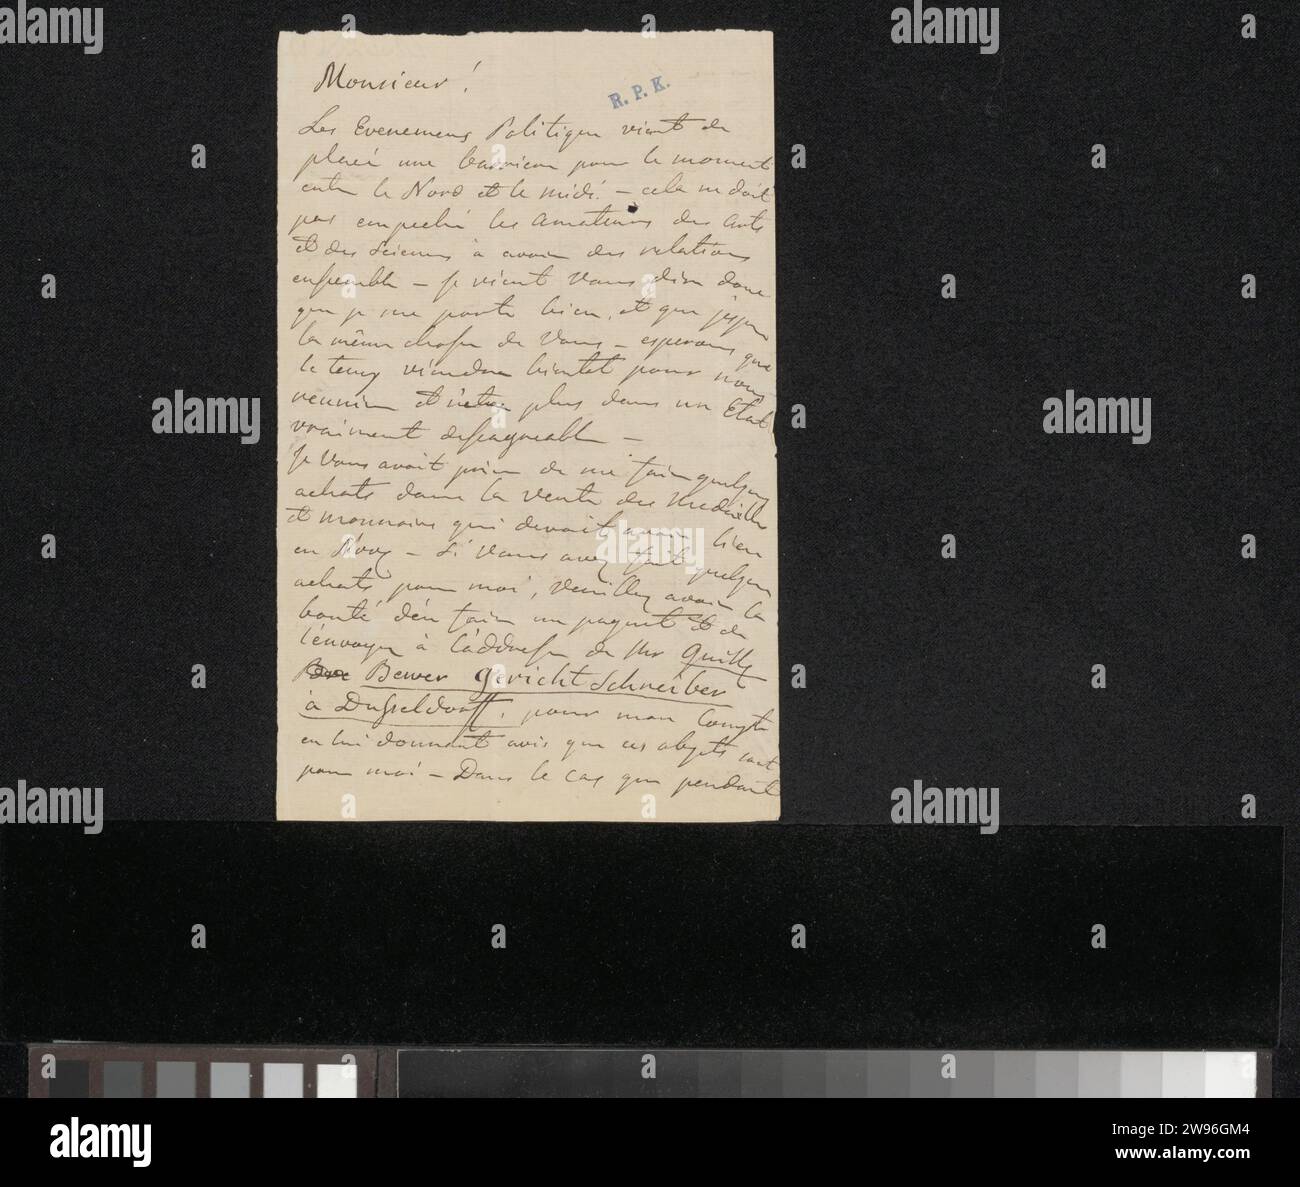 Monsieur!
R. P. K.
Les Evenemens Politique vient de
placée une barriere pour le moment
entre le Nord et le midi. – cela ne doit
pas empeché les amateurs des arts
et des Sciences à avoir des relations
ensemble – je vient vous dire donc
que je me porte bien, et que j'espere
la même chose de vous – esperons que
le tems viendra bientot pour nous
reunire et n'etre plus dans un Etat
vraiment desagreable –
Je vous avoit priée de me faire quelques
achats dans la vente des Medailles
et monnaies qui devoit avoir lieu
en – Si vous avez fait quelques
achats pour moi, veuillez avoir la
bonté d'en faire un paquet et de
l'envoyer à l'addresse de Mr
Bewer Gericht Schreiber
à Dusseldorff, pour mon Compte
en lui donnant avis que ces objets sont
pour moi – Dans le cas que pendant
alamy
Image ID: 2W96GM4
www.alamy.com